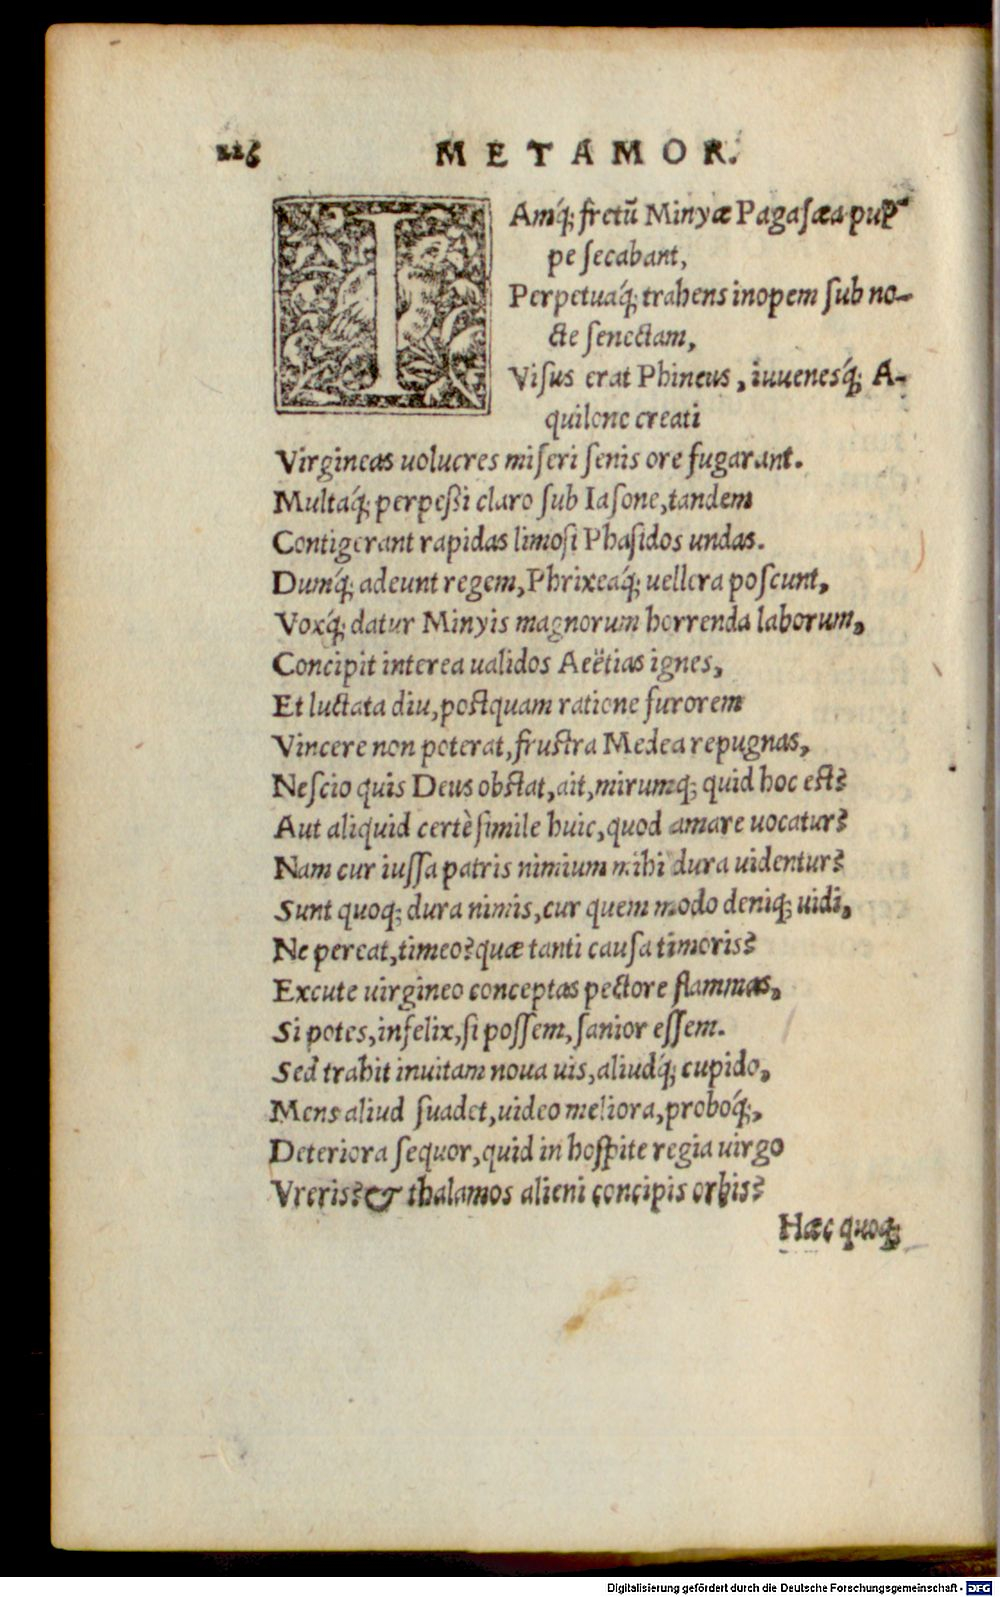 226 METAMOR.
IAmq́; fretū Minyæ Pagasæa pup-
pe secabant,
Perpetuaq́; trahens inopem sub no-
cte senectam,
Visus erat Phineus, iuuenesq́; A-
quilone creati
Virgineas uolucres miseri senis ore fugarant.
Multaq́; perpeßi claro sub Iasone, tandem
Contigerant rapidas limosi Phasidos undas.
Dumq́; adeunt regem, Phrixeaq́; uellera poscunt,
Voxq́; datur Minyis magnorum horrenda laborum,
Concipit interea ualidos Aeëtias ignes,
Et luctata diu, postquam ratione furorem
Vincere non poterat, frustra Medea repugnas,
Nescio quis Deus obstat, ait, mirumq; quid hoc est?
Aut aliquid certè simile huic, quod amare uocatur?
Nam cur iussa patris nimium mihi dura uidentur?
Sunt quoq; dura nimis, cur quem modo deniq; uidi,
Ne pereat, timeo? quæ tanti causa timoris?
Excute uirgineo conceptas pectore flammas,
Si potes, infelix, si possem, sanior essem.
Sed trahit inuitam noua uis, aliudq́; cupido,
Mens aliud suadet, uideo meliora, proboq́;,
Deteriora sequor, quid in hospite regia uirgo
Vreris? & thalamos alieni concipis orbis?
Hæc quoq;
Digitalisierung gefördert durch die Deutsche Forschungsgemeinschaft - DFG